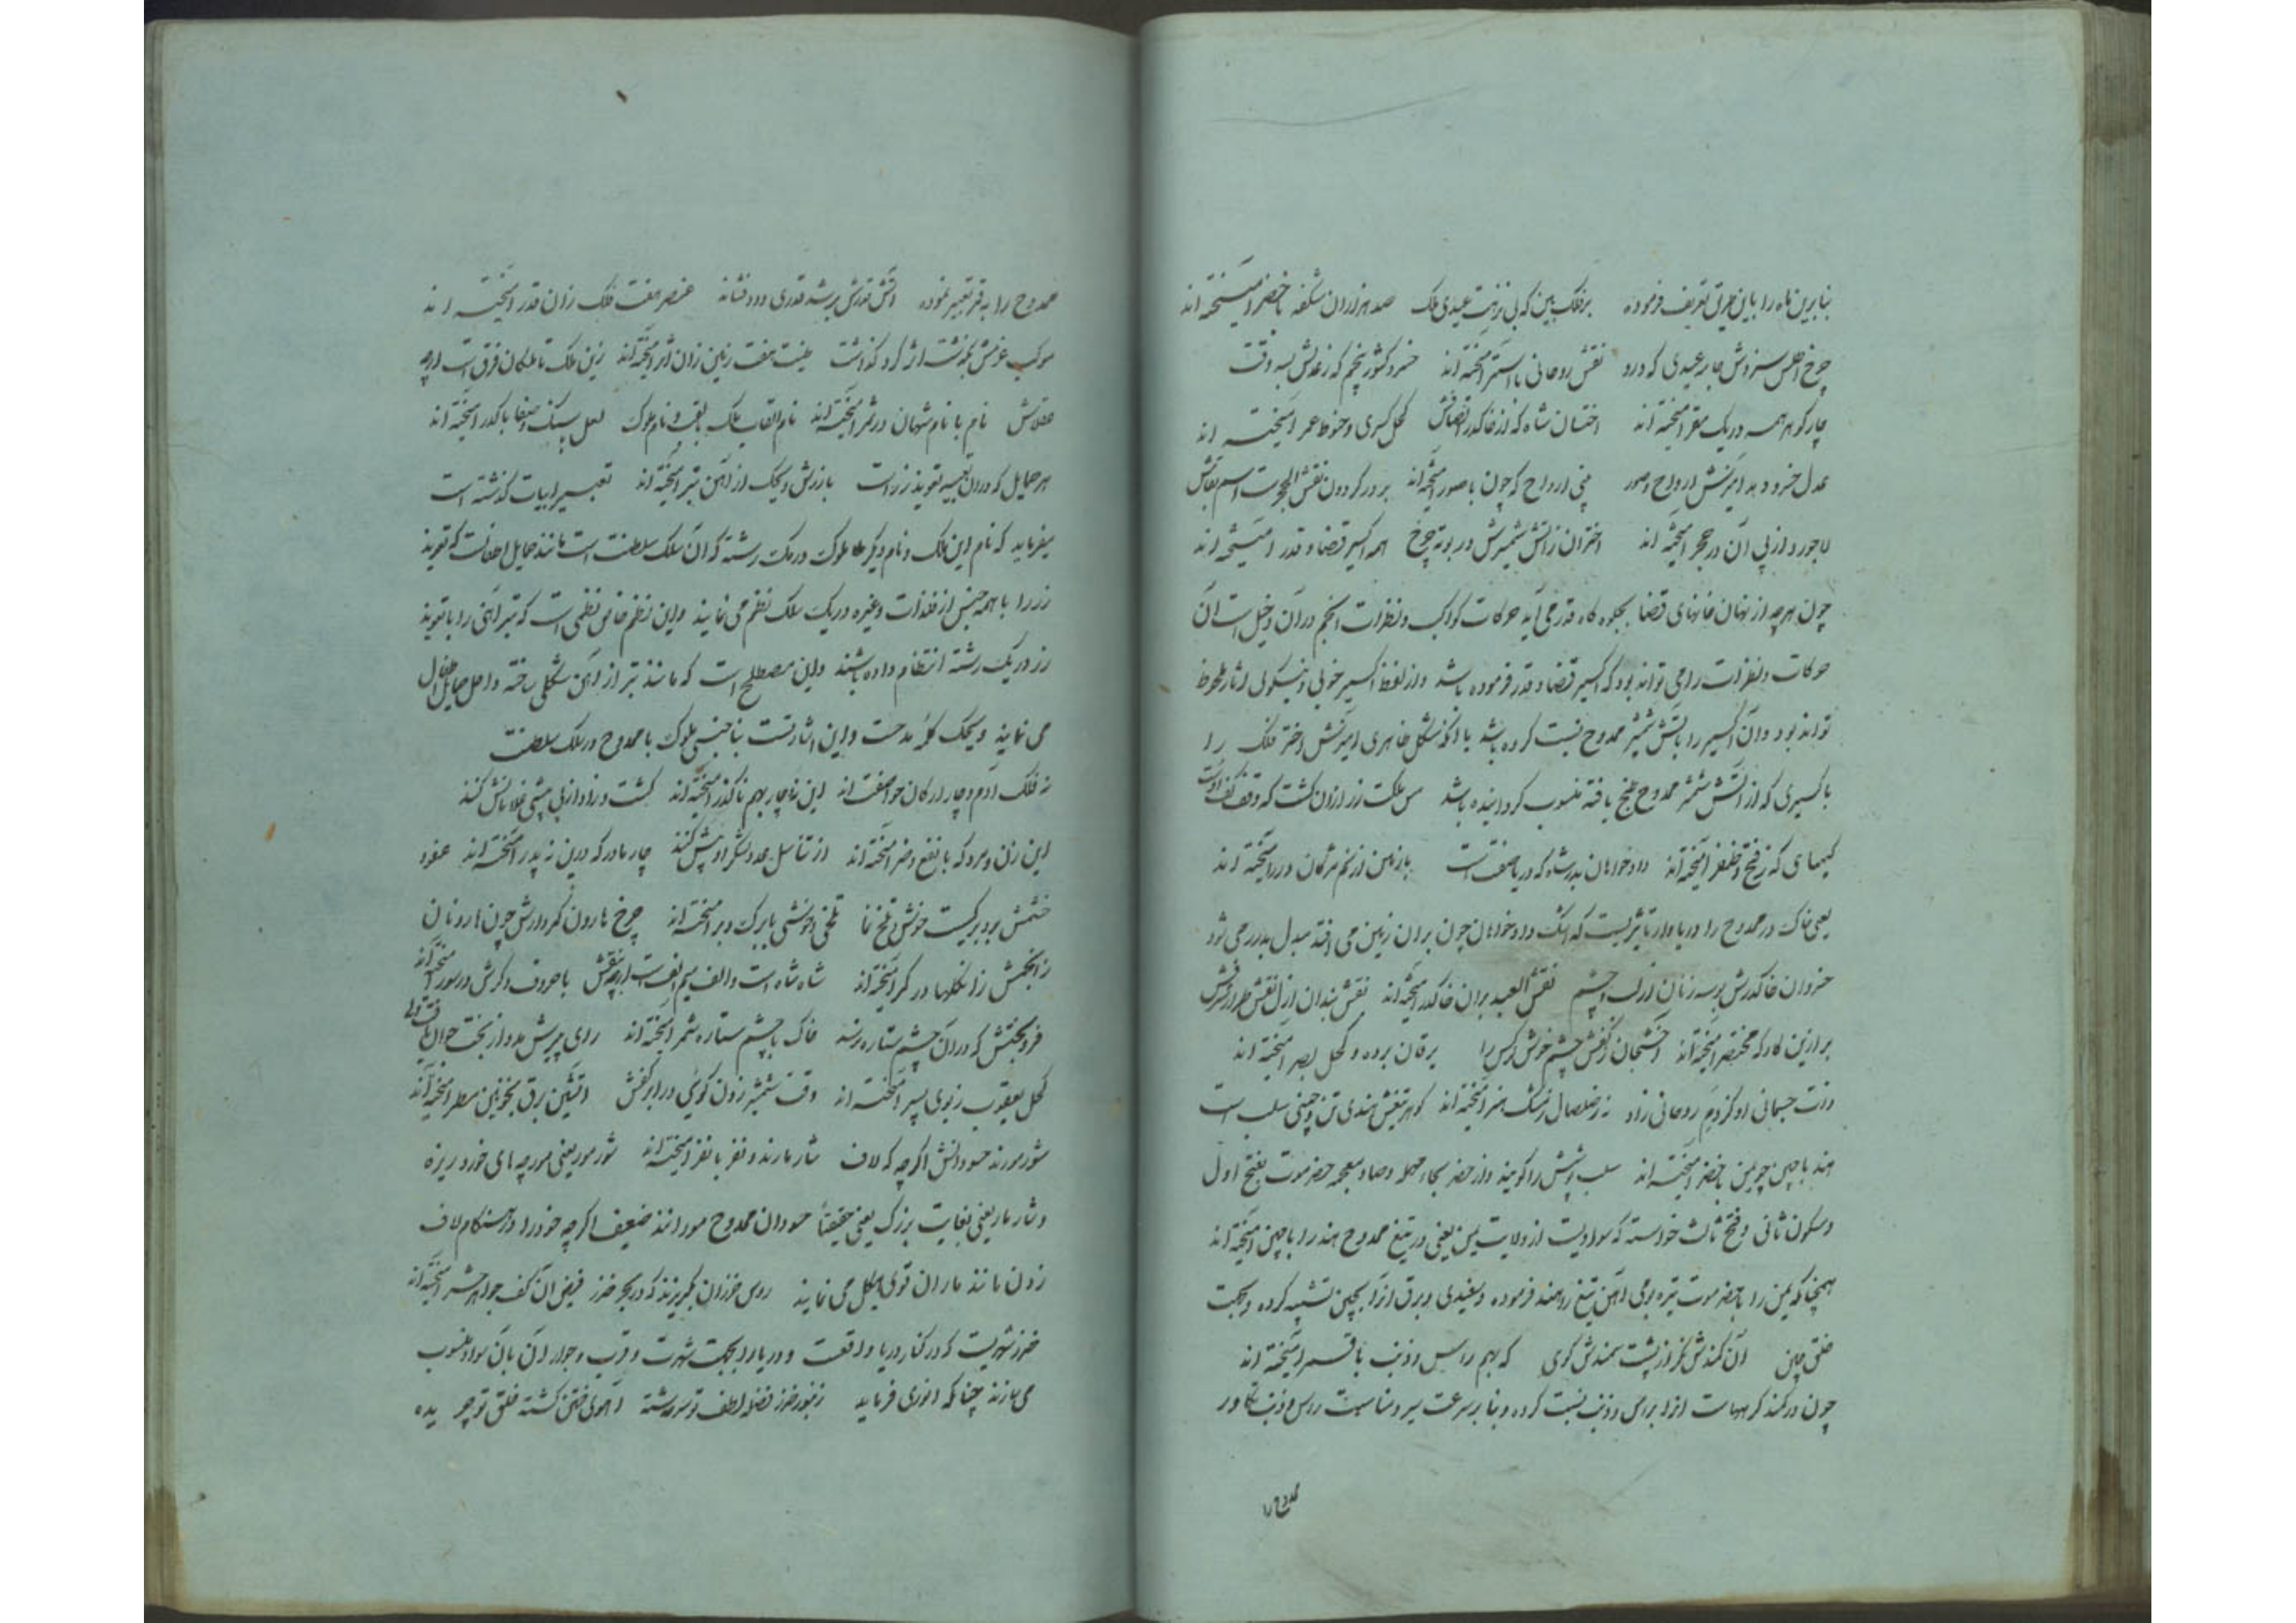 بنابرین ماه را باین حرفی تعریف فرموده برفلک بین که پی نزهت عیدی ملک صد هزاران شکفه با خضر آمیخته اند
چرخ اطلس سزدش جامه عیدی که درو نقش روحانی با استر آمیخته اند خسرو کشور پنجم که ز عدلش بسه وقت
چار گوهر همه در یک مقر آمیخته اند اخستان شاه که از خاک در انصافش کحل کسری و حنوط عمر آمیخته اند
عدل خسرو دهد آمیزش ارواح و صور پی ارواح که چون با صور آمیخته اند بر در گردون نقش الحجرست اسم بقاش
لاجورد از پی آن در حجر آمیخته اند اختران ز آتش شمشیرش در بوته چرخ همه اکسیر قضا و قدر آمیخته اند
چون هرچه از نهان خانهای قضا بجلوه کاه قدر می آید حرکات کواکب و نظرات انجم در آن دخیل است آن
حرکات و نظرات را می تواند بود که اکسیر قضا و قدر فرموده باشد و از لفظ اکسیر خوبی و نیکویی آثار ملحوظ
تواند بود و آن اکسیر را بآتش شمشیر ممدوح نسبت کرده باشد یا آنکه شکل ظاهری آمیزش اختر فلک را
باکسیری که از آتش شمشیر ممدوح طبخ یافته منسوب کردانیده باشد مس ملکت زر ازان کشت که وقف کف اوست
کیمیای که ز فتح و ظفر آمیخته اند داد خواهان بدر شاه که دریا صفت است بازمین از نم مژکان درر آمیخته اند
یعنی خاک در ممدوح را دریاوار تاثیریست که اشک داد خواهان چون بران زمین می افتد مبدل بدرر می شود
خسروان خاک درش بوسه زنان از لب و چشم نقش العبد بران خاک در آمیخته اند نقش بندان ازل نقش طراز فرش
برازین کارکه مختصر آمیخته اند اخشیجان ز کفش چشم خوش نرگس را یرقان برده و کحل بصر آمیخته اند
ذات جسمانی او کز دم روحانی زاد نه ز صلصال ز مشک هنر آمیخته اند گوهر تیغش هندی تن و چینی سلب است
هند با چین چو یمن با حضر آمیخته اند سلب پوشش را کویند و از حضر بحاء مهمله و ضاد معجمه حضرموت بفتح اول
و سکون ثانی و فتح ثالث خواسته که سوادیست از ولایت یمن یعنی در تیغ ممدوح هند را با چین آمیخته اند
همچنانکه یمن را با حضرموت تیره برمی آهن تیغ را هند فرموده و سفیدی و برق آنرا بچین تشبیه کرده و بجهت
خلق چین آن کمندش نگر از پشت سمندش گوی که بهم راس و ذنب با قمر آمیخته اند
چون در کمند کرههاست آنرا براس و ذنب نسبت کرده و بنا بر سرعت سیر و مناسبت راس و ذنب تکاور
ممدوح را
ممدوح را به قمر تعبیر نموده آتش تیغش بر شه قدری دود فشانه عنصر هفت فلک زان قدر آمیخته اند
موکب عزمش بگذشت اثر گرد گذاشت طینت هفت زمین زان اثر آمیخته اند زین ملک تا ملکان فرق است ارچه
عقلاش نام با نام شهان در سمر آمیخته اند نام القاب ملک بالقب و نام ملوک لعل با سنگ و صفا با کدر آمیخته اند
هر حمایل که در آن تعبیه تعویذ زر است بازرش و یحک از آهن تبر آمیخته اند تعبیر ابیات کذشته است
میفرماید که نام این ملک و نام دیگر ملوک در یک رشته که آن سلک سلطنت است مانند حمایل اطفالست که تعویذ
زر را با همه جنس از فلذات و غیره در یک سلک نظم می نمایند و این نظم خاص نظمی است که تبر آهنی را با تعویذ
زر در یک رشته انتظام داده باشند و این مصطلح است که مانند تبر از آهن شکلی ساخته داخل حمایل اطفال
می نمایند و یحک کلمه مدحست و این اشارتست بنا جنسی ملوک با ممدوح در سلک سلطنت
نه فلک آدم و چار ارکان حوا صفت اند این نه و چار بهم ناگذر آمیخته اند کشت و زاد از پی بیشی غلامانش کنند
این زن و مرد که با نفع و ضر آمیخته اند از تناسل عدد لشکر او بیش کنند چار مادر که درین نه پدر آمیخته اند عفو و
خشمش برد برکیست خوش و تلخ نما تلخی و خوشی با برگ و بر آمیخته اند چرخ هارون کمر دارش چون هارونان
زانجمش زانگلها در کمر آمیخته اند شاه شاه است و الف میم الف است ارچه بنقش با حروف دگرش در سور آمیخته اند
فر بختش که در آن چشم ستاره نرسد خاک با چشم ستاره شمر آمیخته اند رای پیرش مدد از بخت جوان یافت ولی
کحل یعقوب ز بوی پسر آمیخته اند وقت شمشیر زدن گوئی در ابر کفش آتشین برق بخونین مطر آمیخته اند
شور مورند حسودانش اگرچه که لاف شار مارند و نفر با نفر آمیخته اند شور مور یعنی مورچه های خورد ریزه
و شار مار یعنی بغایت بزرک یعنی حقیقتاً حسودان ممدوح مور مانند ضعیف اگرچه خود را در هنکام لاف
زدن مانند ماران قوی هیکل می نمایند روس خزران بگریزند که در بحر خزر فیض آن کف جواهر شمر آمیخته اند
خزر شهریست که در کنار دریا واقعست و دریا را بجهت شهرت و قرب و جوار آن بآن سواد منسوب
می سازند چنانکه انوری فرماید زنبور خزر فضله لطف تو سرشته آهوی ختن کشته خلق تو چریده